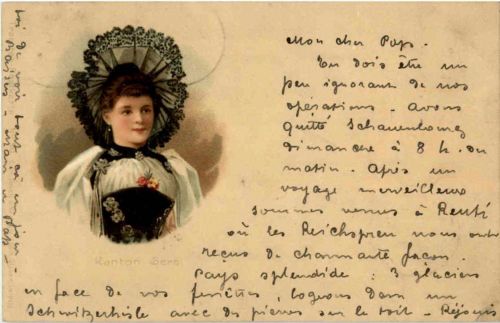 Mon cher Pops.
Tu dois être un
peu ignorant de nos
opérations - avons
quitté Schauenbourg
dimanche à 8 h. du
matin. Après un
voyage merveilleux
sommes venus à
où les Reichs nous ont
reçus de charmante façon.
Pays splendide : 3 glaciers
en face de nos fenêtres, logeons dans un
avec des pierres sur le toit - Réjouis
toi de voir tout cà un jour -
Baisers - Marie
Kanton Bern